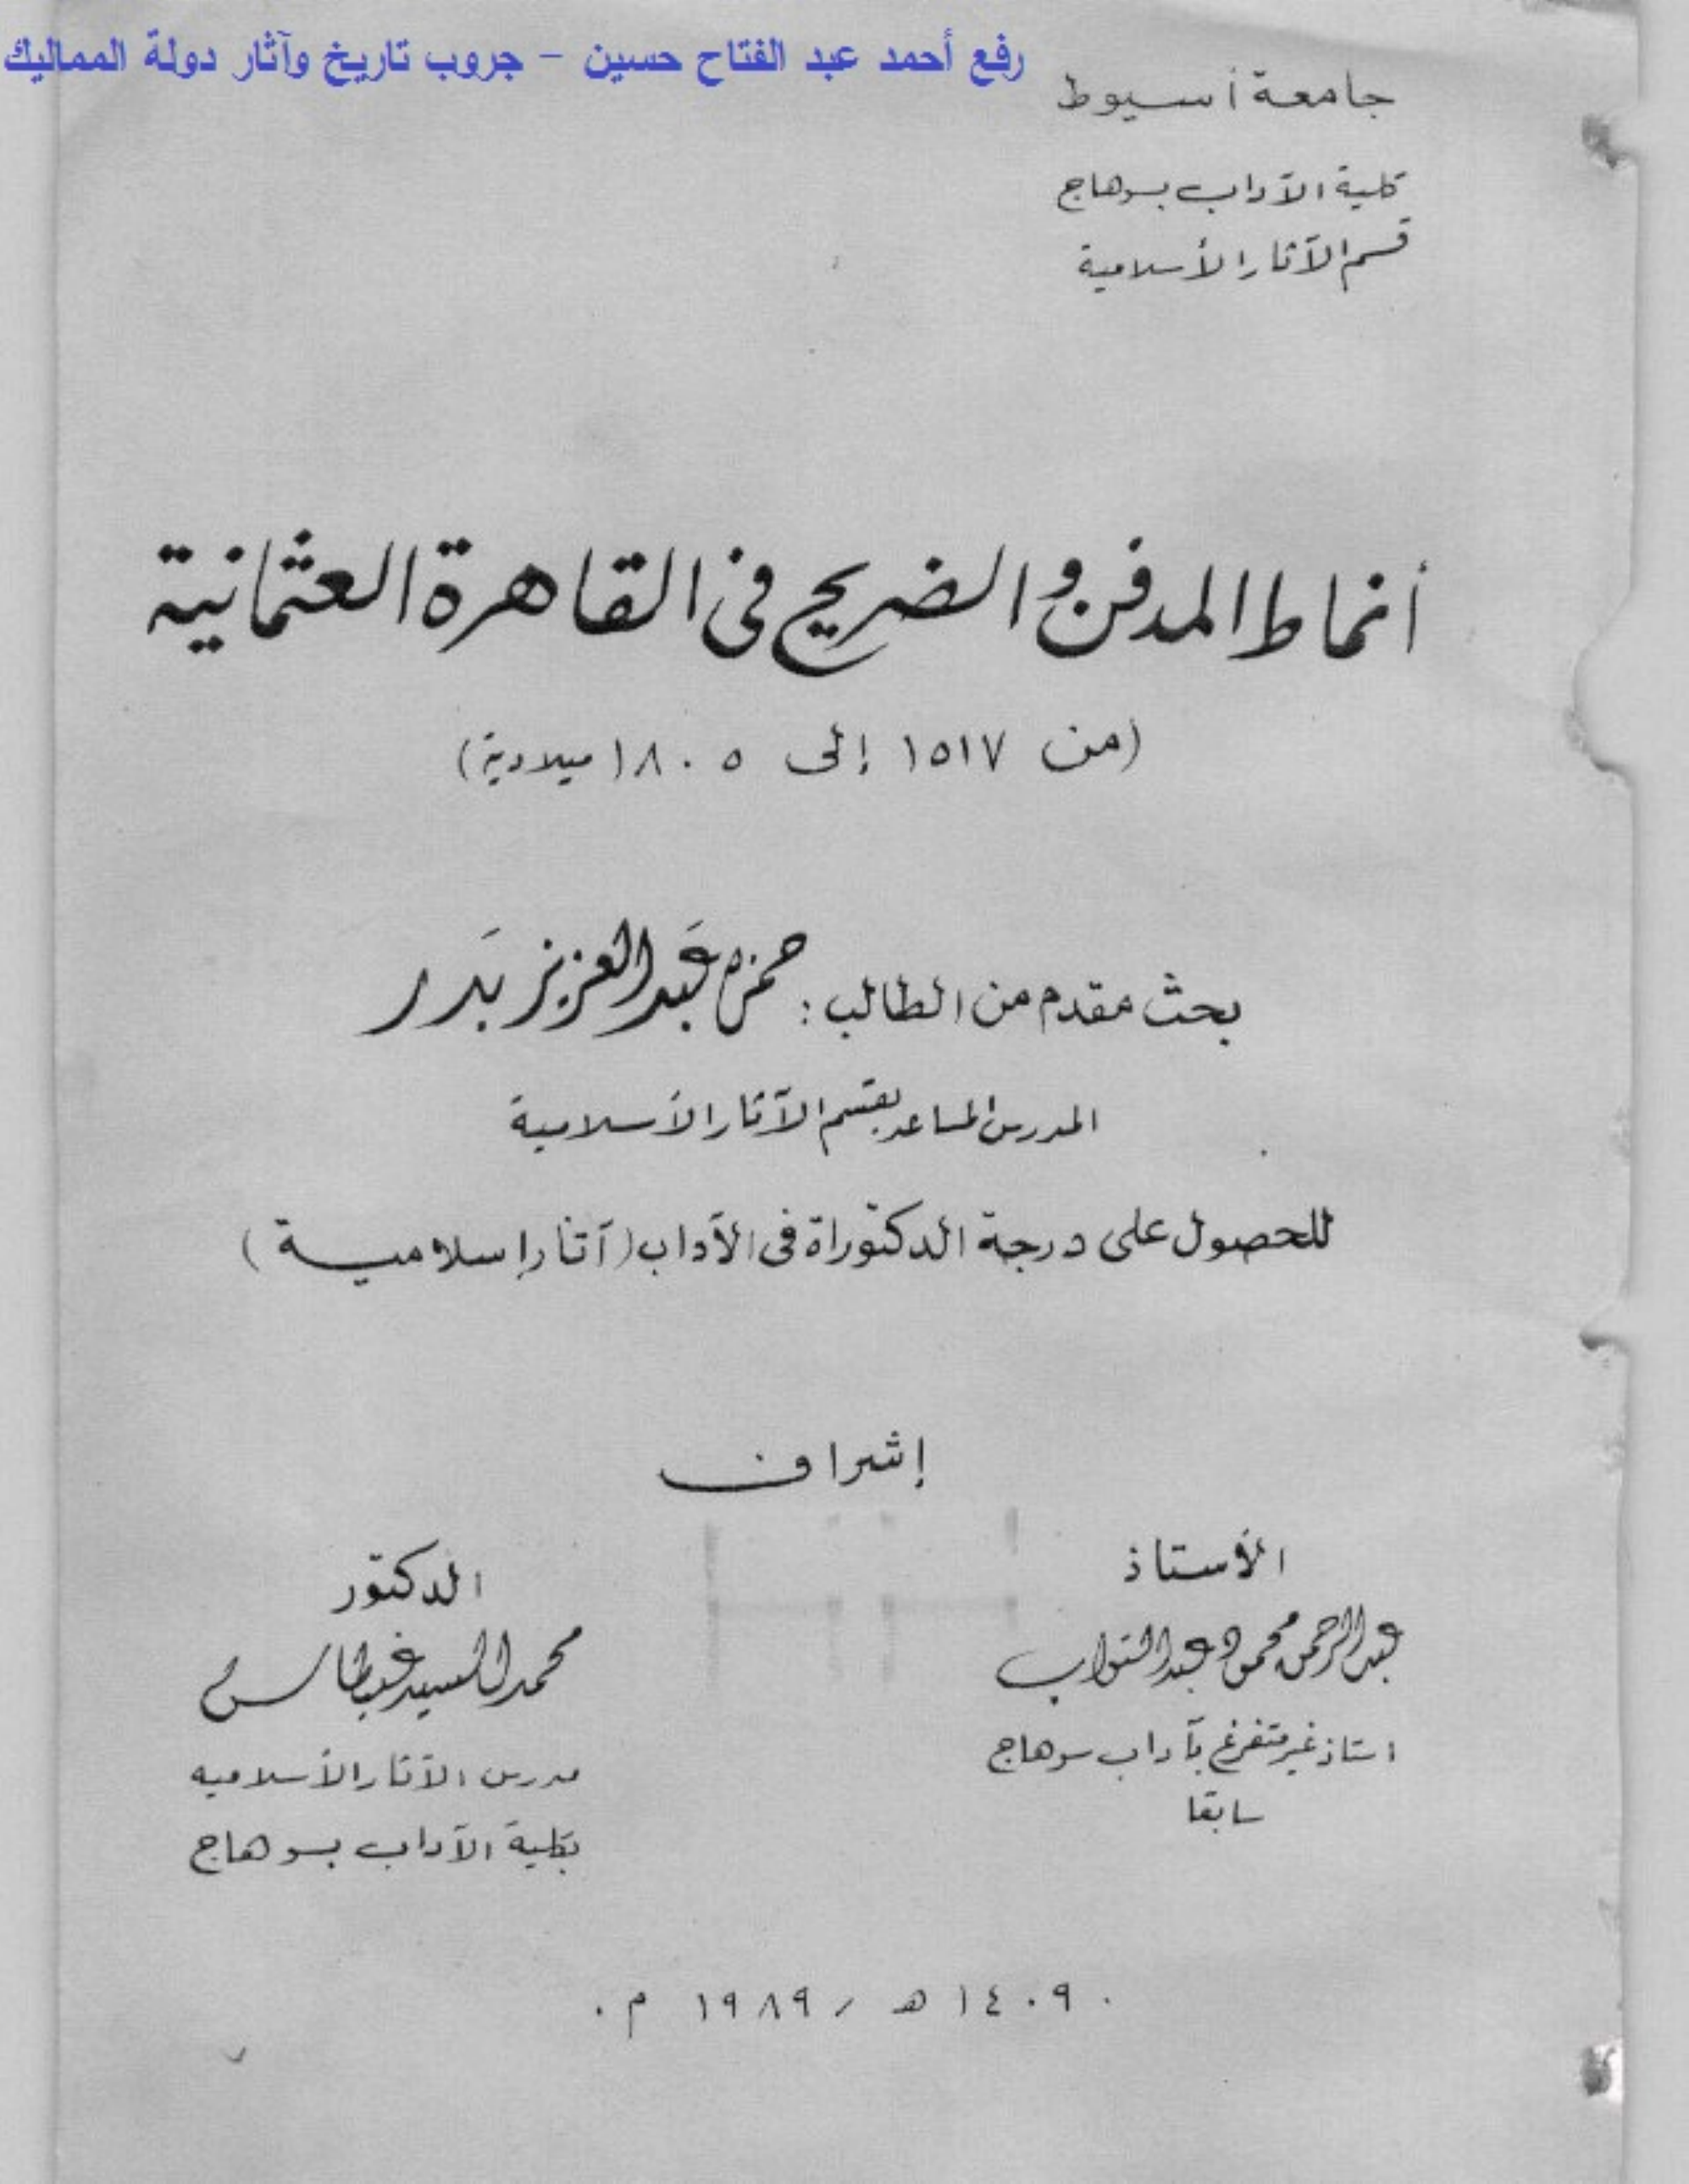 رفع أحمد عبد الفتاح حسين - جروب تاريخ وآثار دولة المماليك
جامعة أسيوط
كلية الآداب بسوهاج
قسم الآثار الأسلامية
أنماط المدفن والضريح فى القاهرة العثمانية
(من ١٥١٧ إلى ١٨٠٥ ميلادية)
بحث مقدم من الطالب : حمزة عبد العزيز بدر
المدرس المساعد بقسم الآثار الأسلامية
للحصول على درجة الدكتوراة فى الآداب (آثار إسلامية)
إشراف
الأستاذ
عبد الرحمن محمود عبد التواب
استاذ غير متفرغ بآداب سوهاج
سابقا
الدكتور
محمد السيد غيطاس
مدرس الآثار الأسلاميه
بكلية الآداب بسوهاج
١٤٠٩ هـ / ١٩٨٩ م .